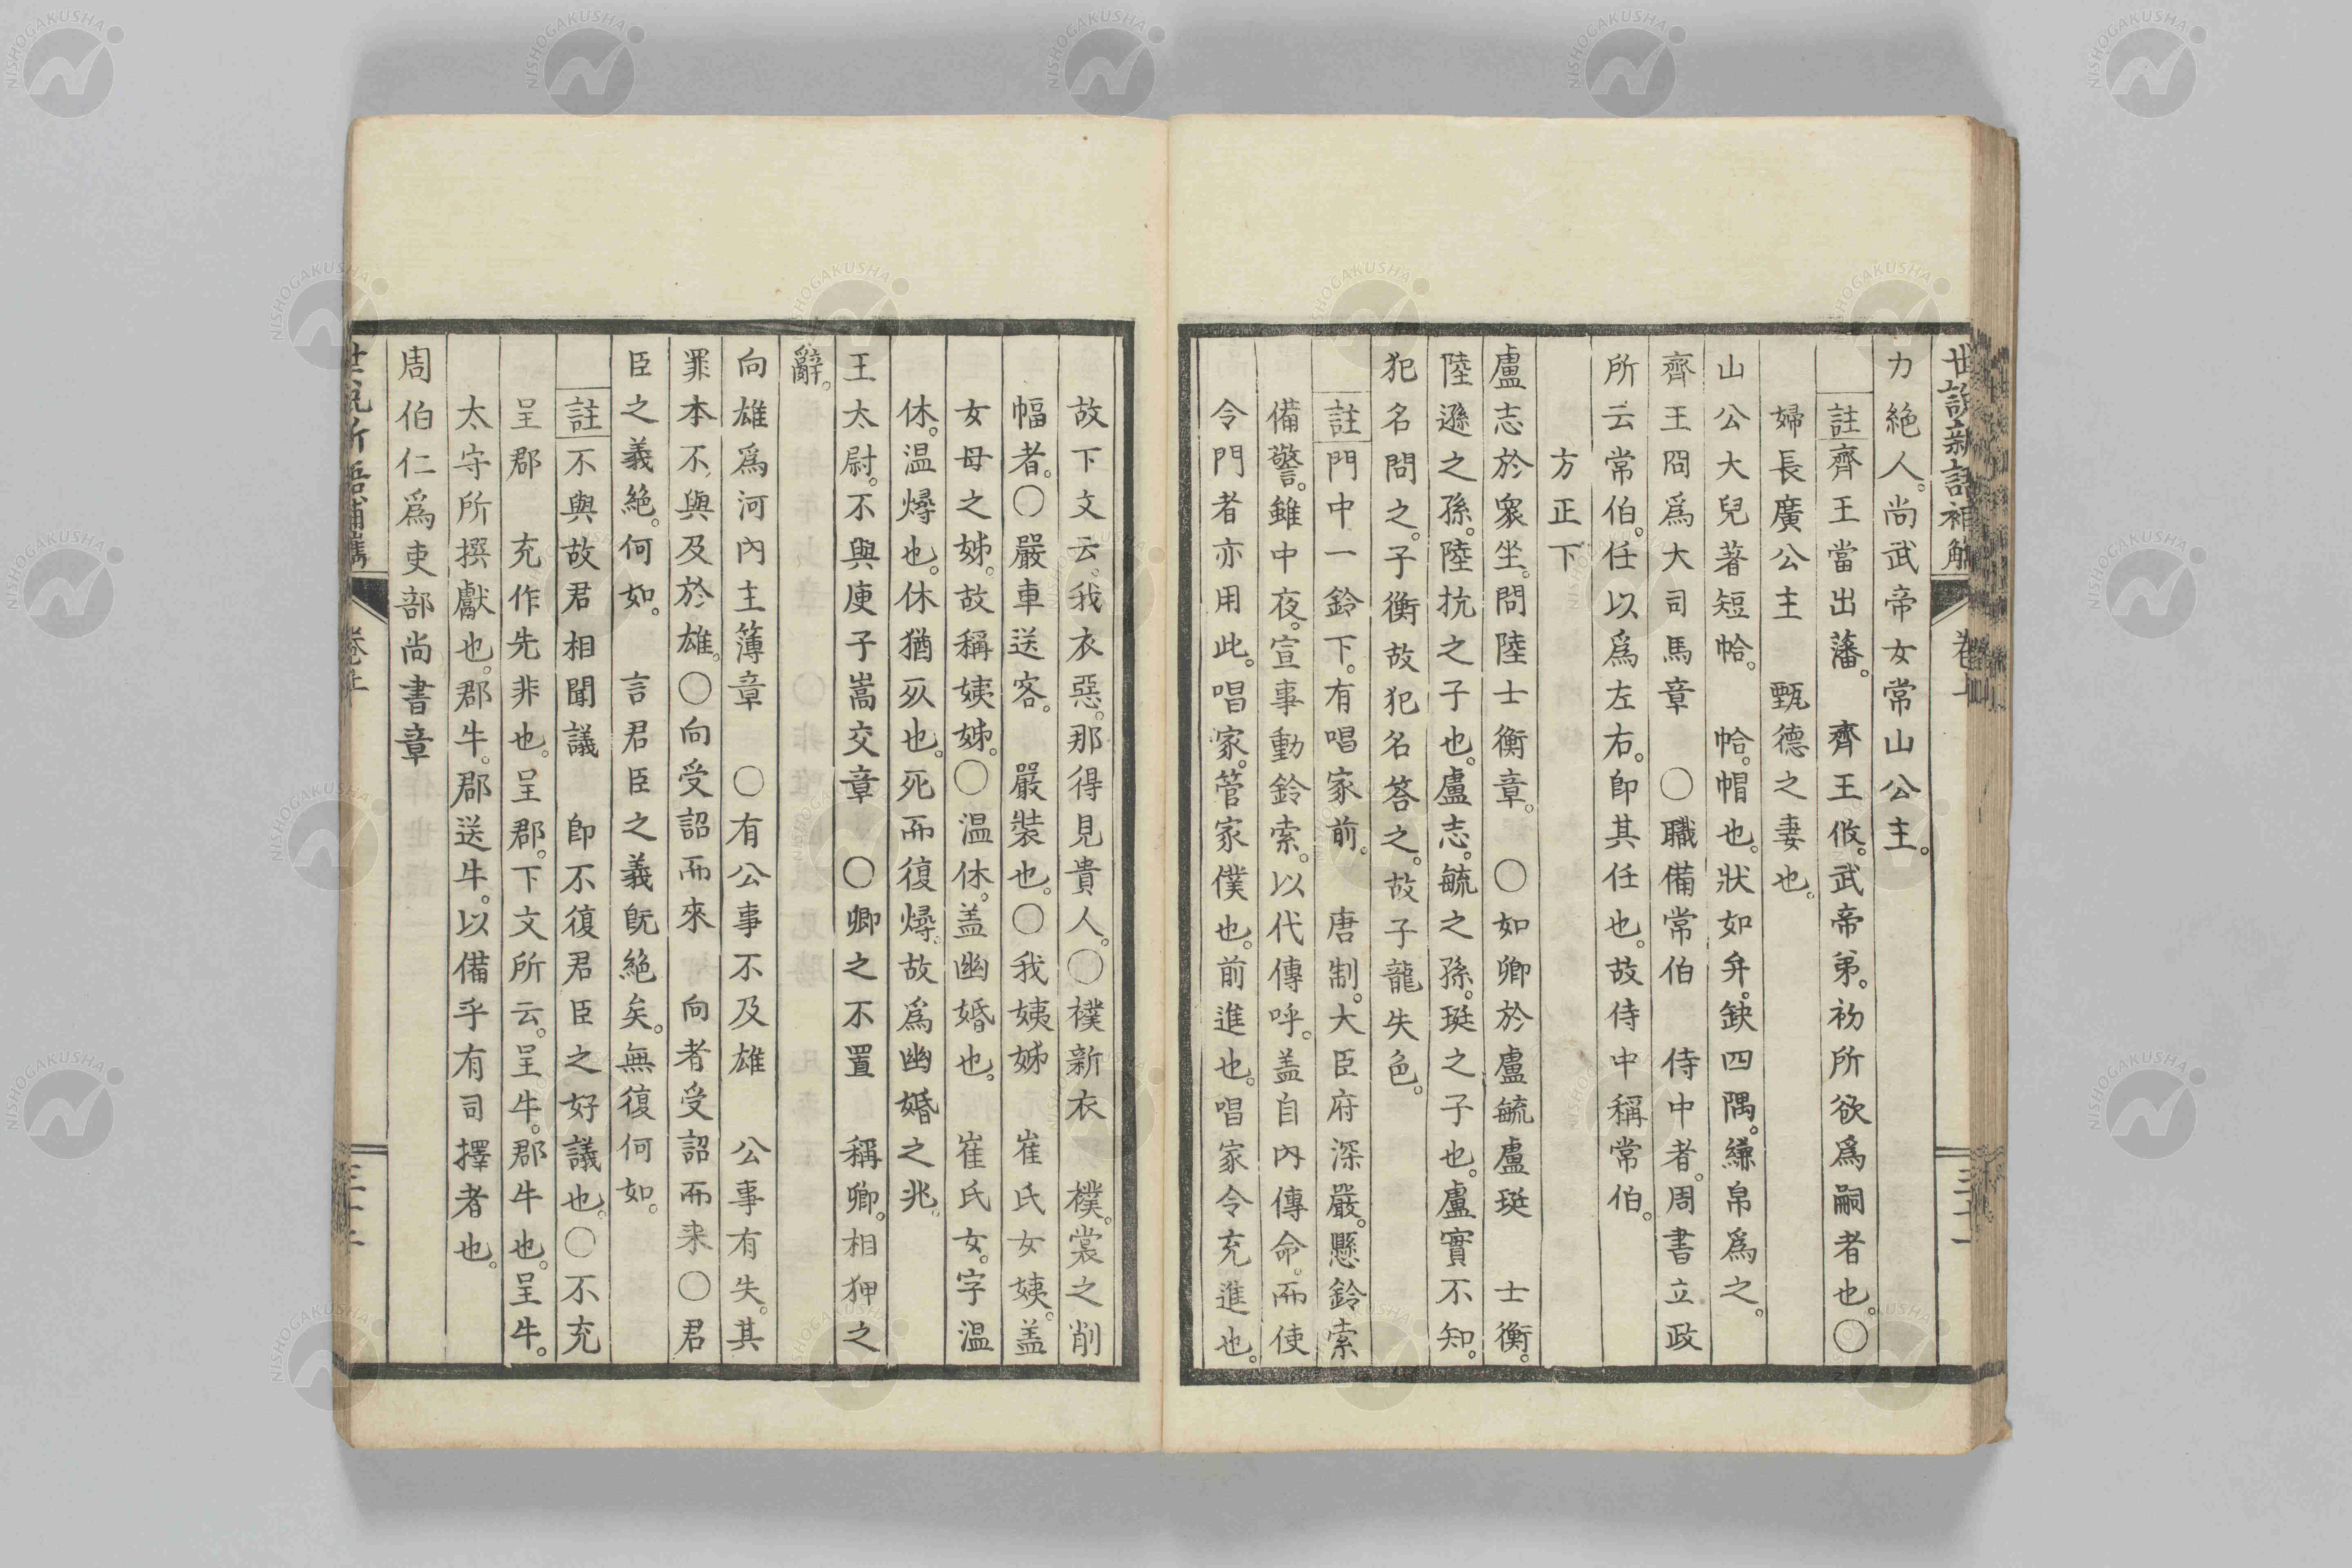 力絶人。尚武帝女常山公主。
註齊王當出藩。 齊王攸。武帝弟。初所欲爲嗣者也。○
婦長廣公主 甄德之妻也。
山公大兒著短帢。 帢。帽也。狀如弁。缺四隅。縑帛爲之。
齊王冏爲大司馬章 ○職備常伯 侍中者。周書立政
所云常伯。任以爲左右。卽其任也。故侍中稱常伯。
方正下
盧志於衆坐。問陸士衡章。 ○如卿於盧毓盧珽 士衡。
陸遜之孫。陸抗之子也。盧志。毓之孫。珽之子也。盧實不知。
犯名問之。子衡故犯名答之。故子龍失色。
註門中一鈴下。有唱家前。 唐制。大臣府深嚴。懸鈴索
備警。雖中夜。宣事動鈴索。以代傳呼。盖自內傳命。而使
令門者亦用此。唱家。管家僕也。前進也。唱家令充進也。
故下文云。我衣惡。那得見貴人。○襆新衣 襆。裳之削
幅者。○嚴車送客。 嚴裝也。○我姨姊 崔氏女姨。盖
女母之姊。故稱姨姊。○溫休。盖幽婚也。 崔氏女。字溫
休。溫燖也。休猶㱕也。死而復燖。故爲幽婚之兆。
王太尉。不與庾子嵩交章 ○卿之不置 稱卿。相狎之
辭。
向雄爲河內主簿章 ○有公事不及雄 公事有失。其
罪本不與及於雄。○向受詔而來 向者受詔而来○君
臣之義絶。何如。 言君臣之義旣絶矣。無復何如。
註不與故君相聞議 卽不復君臣之好議也。○不充
呈郡 充作先非也。呈郡。下文所云。呈牛。郡牛也。呈牛。
太守所撰獻也。郡牛。郡送牛。以備乎有司擇者也。
周伯仁爲吏部尚書章